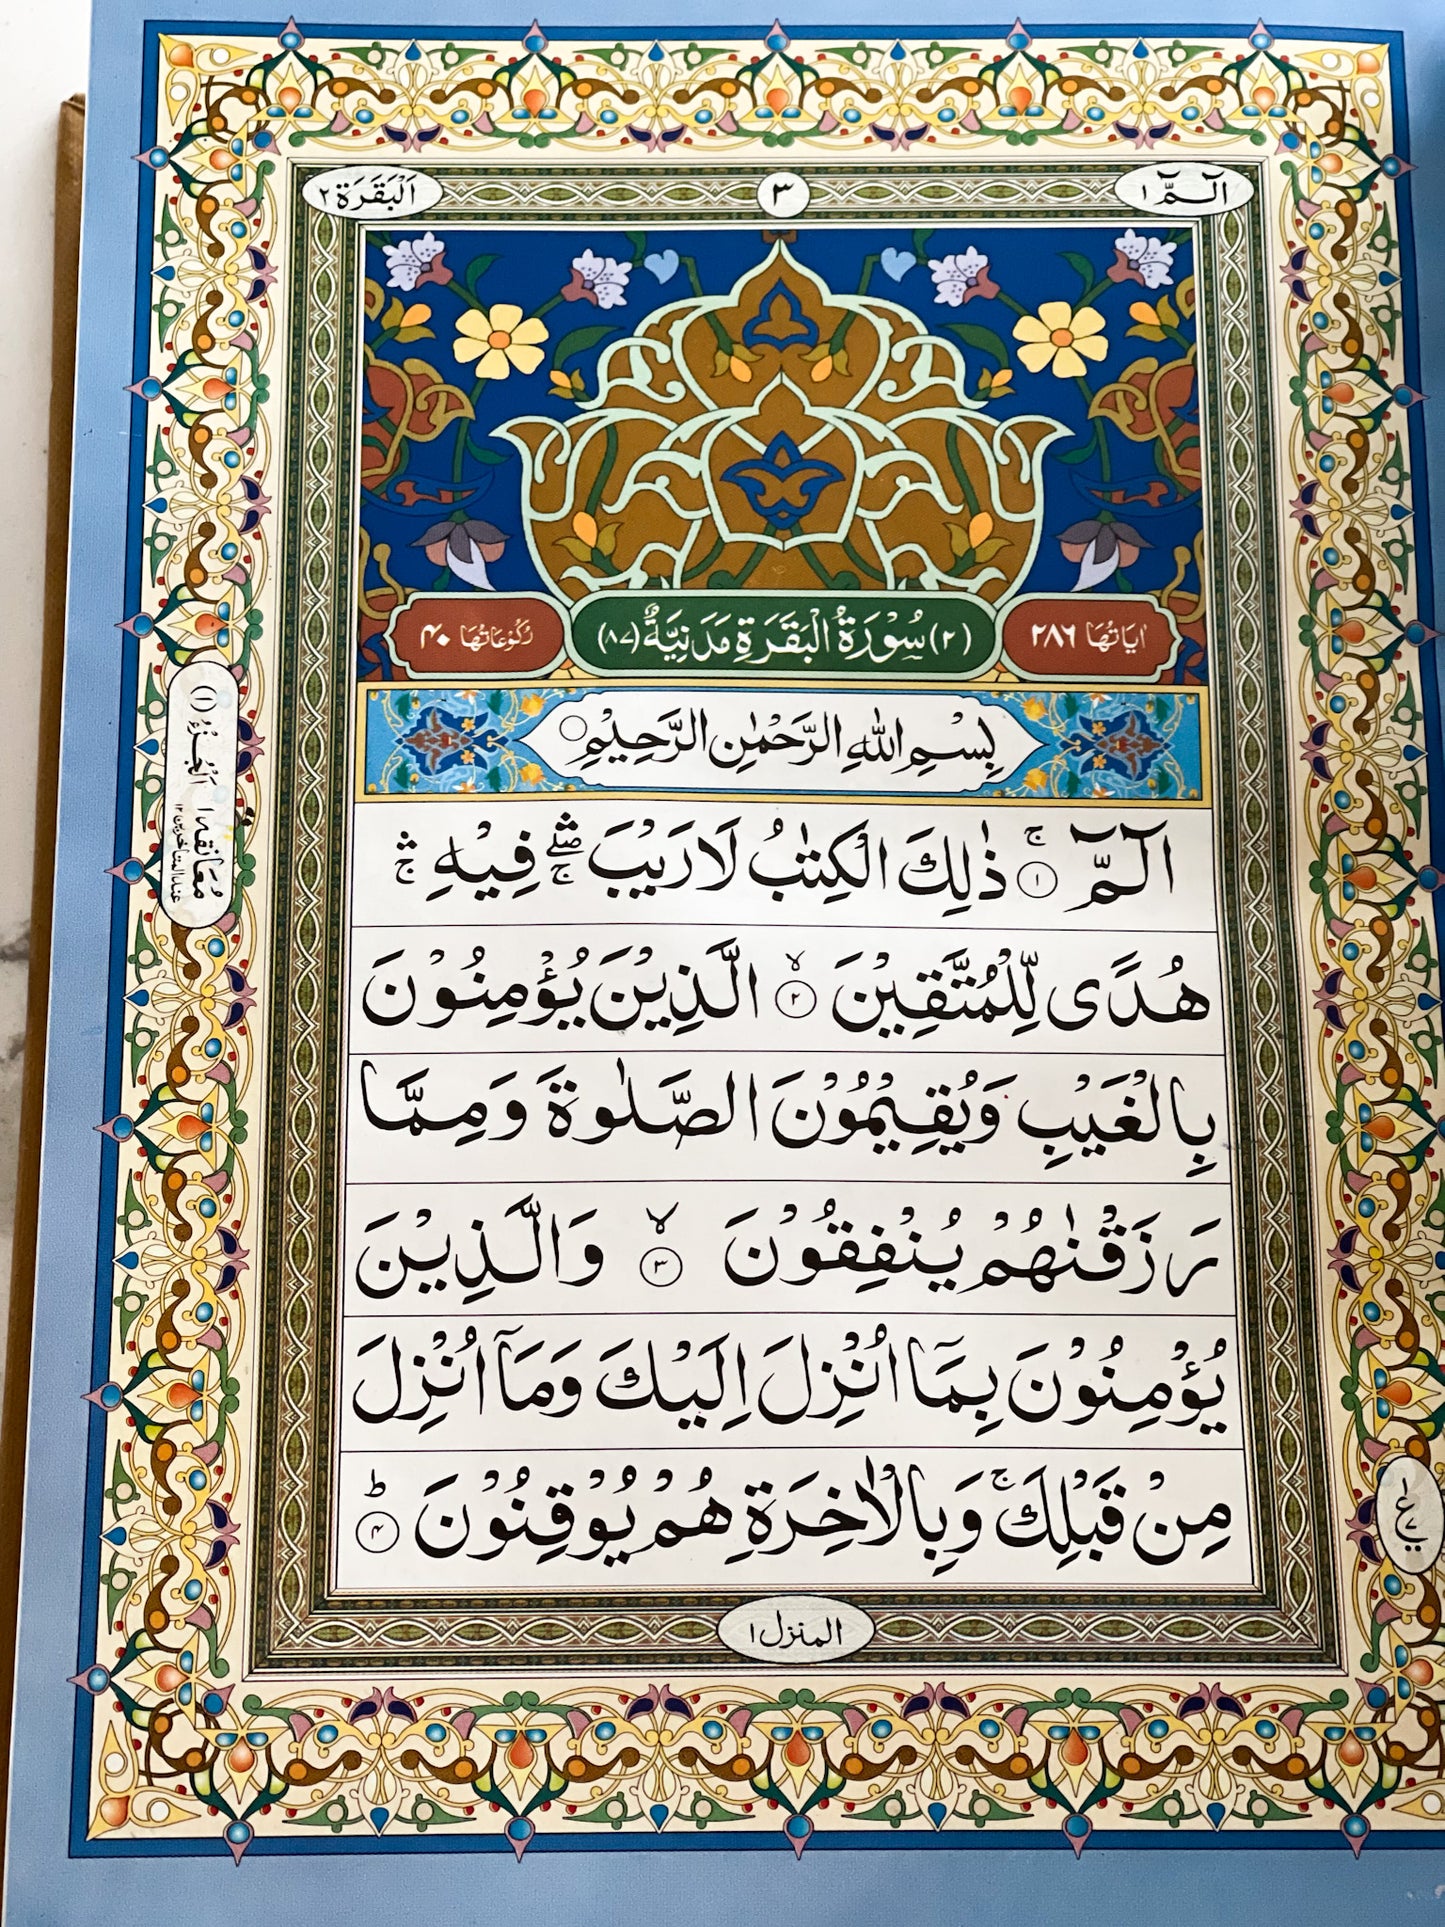 الٓـمّٓ ١
٣
اَلْبَقَرَة ٢
اٰيَاتُهَا ٢٨٦
(٢) سُوْرَةُ الْبَقَرَةِ مَدَنِيَّةٌ (٨٧)
رُكُوْعَاتُهَا ٤٠
بِسْمِ اللّٰهِ الرَّحْمٰنِ الرَّحِيْمِ
الٓـمّٓ ۚ ١ ذٰلِكَ الْكِتٰبُ لَا رَيْبَ ۛۖۚ فِيْهِ ۛۚ
هُدًى لِّلْمُتَّقِيْنَ ۙ ٢ الَّذِيْنَ يُؤْمِنُوْنَ
بِالْغَيْبِ وَيُقِيْمُوْنَ الصَّلٰوةَ وَمِمَّا
رَزَقْنٰهُمْ يُنْفِقُوْنَ ۙ ٣ وَالَّذِيْنَ
يُؤْمِنُوْنَ بِمَآ اُنْزِلَ اِلَيْكَ وَمَآ اُنْزِلَ
مِنْ قَبْلِكَ ۚ وَبِالْاٰخِرَةِ هُمْ يُوْقِنُوْنَ ؕ ٤
اَلْجُزْءُ (١)
مُعَانَقَة ١
عند المتاخرين ١٢
المنزل ١